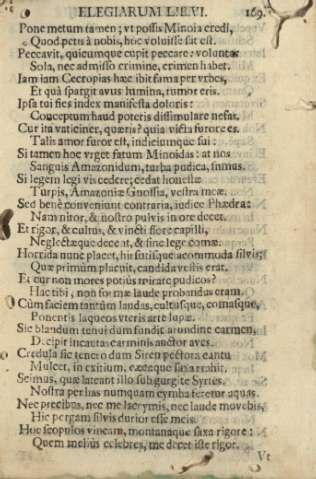 ELEGIARUM LIB. VI. 169.
Pone metum tamen; vt possis Minoia credi,
Quod petis à nobis, hoc voluisse sat est.
Peccavit, quicumque cupit peccare: voluntas
Sola, nec admisso crimine, crimen habet.
Iam iam Cecropias hæc ibit fama per vrbes,
Et quà spargit avus lumina, rumor eris.
Ipsa tui fies index manifesta doloris:
Conceptum haud poteris dissimulare nefas.
Cur ita vaticiner, quæris? quia victa furore es.
Talis amor furor est, indiciumque sui:
Si tamen hoc vrget fatum Minoidas: at nos
Sanguis Amazonidum, turba pudica, sumus.
Si legem legi vis cedere; cedat honestæ
Turpis, Amazoniæ Gnossia, vestra meæ.
Sed benè conveniunt contraria, iudice Phædra:
Nam nitor, & nostro pulvis in ore decet.
Et rigor, & cultus, & vincti flore capilli,
Neglectæque decent, & sine lege comæ.
Horrida nunc placet, hirsutisque acommoda silvis;
Quæ primùm placuit, candida vestis erat.
Et cur non mores potiùs mirare pudicos?
Hac tibi, non formæ laude probandus eram.
Cùm faciem tantùm laudas, cultusque, comasque,
Ponentis laqueos vteris arte lupæ.
Sic blandum tenui dum fundit arundine carmen,
Decipit incautas carminis auctor aves.
Credula sic tenero dum Siren pectora cantu
Mulcet, in exitium, cæcaque saxa trahit.
Scimus, quæ lateant illo sub gurgite Syrtes.
Nostra per has numquam cymba feretur aquas.
Nec precibus, nec me lacrymis, nec laude movebis,
Hic pergam silvis durior esse meis.
Hoc scopulos vincam, montanaque saxa rigore:
Quem meliùs celebres, me decet iste rigor.
Vt